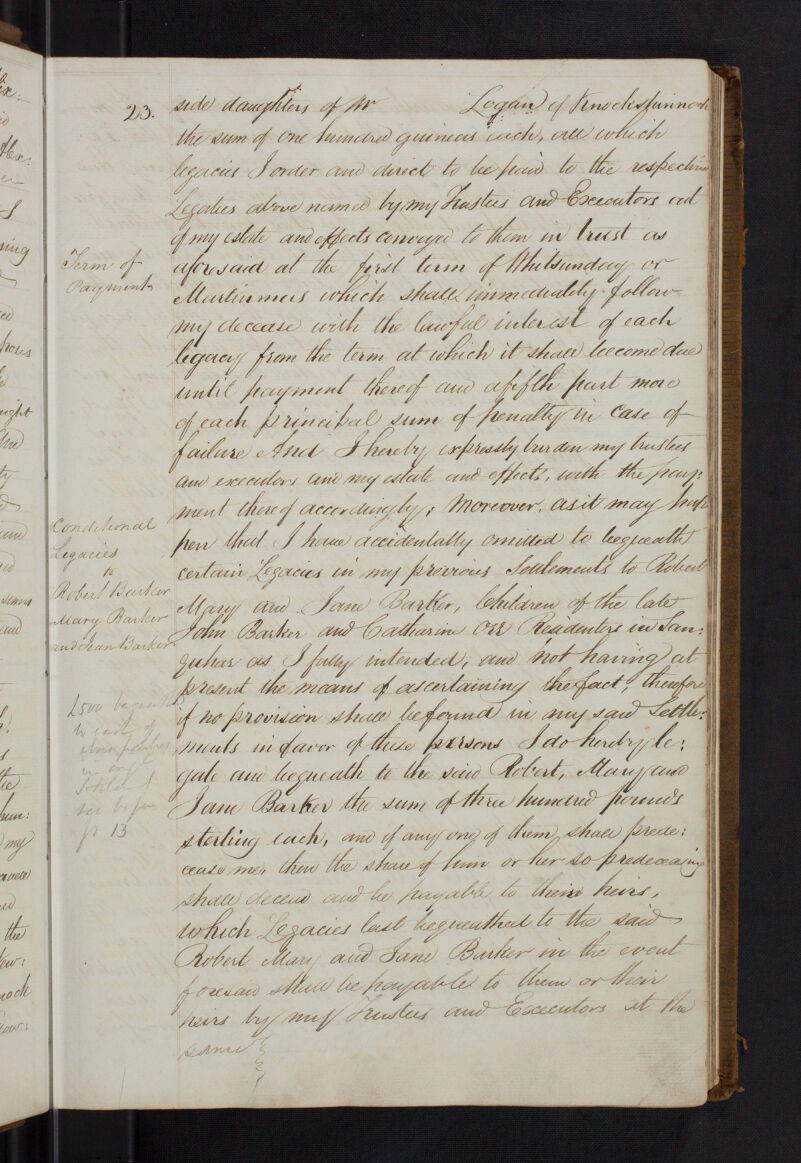 23.
side daughters of Mr Logan of Knockshinnoch
the sum of one hundred guineas each, all which
legacies I order and direct to be paid to the respective
Legatees above named by my Trustees and Executors out
of my estate and effects conveyed to them in trust as
aforesaid at the first term of Whitsunday or
Martinmas which shall immediately follow
my decease with the lawful interest of each
legacy from the term at which it shall become due
until payment thereof and a fifth part more
of each principal sum of penalty in case of
failure And I hereby expressly burden my trustees
and executors and my estate and effects, with the pay:
ment thereof accordingly; Moreover, as it may hap
pen that I have accidentally omitted to bequeath
certain Legacies in my previous Settlements to Robert
Mary and Jane Barker, Children of the late
John Barker and Catharine Orr Residenters in San:
quhar as I fully intended, and not having at
present the means of ascertaining the fact, therefore
if no provision shall be found in my said Settle:
ments in favor of these persons I do hereby le:
gate and bequeath to the said Robert, Mary and
Jane Barker the sum of three hundred pounds
sterling each, and if any one of them shall prede:
cease me, then the share of him or her so predeceasing
shall decend and be payable to their heirs,
which Legacies last bequeathed to the said
Robert Mary and Jane Barker in the event
foresaid shall be payable to them or their
heirs by my Trustees and Executors at the
same
Term of
Payment
Conditional
Legacies
to
Robert Barker
Mary Barker
and Jean Barker
£500 bequeathed
to each of
these parties
in
see before
p 13